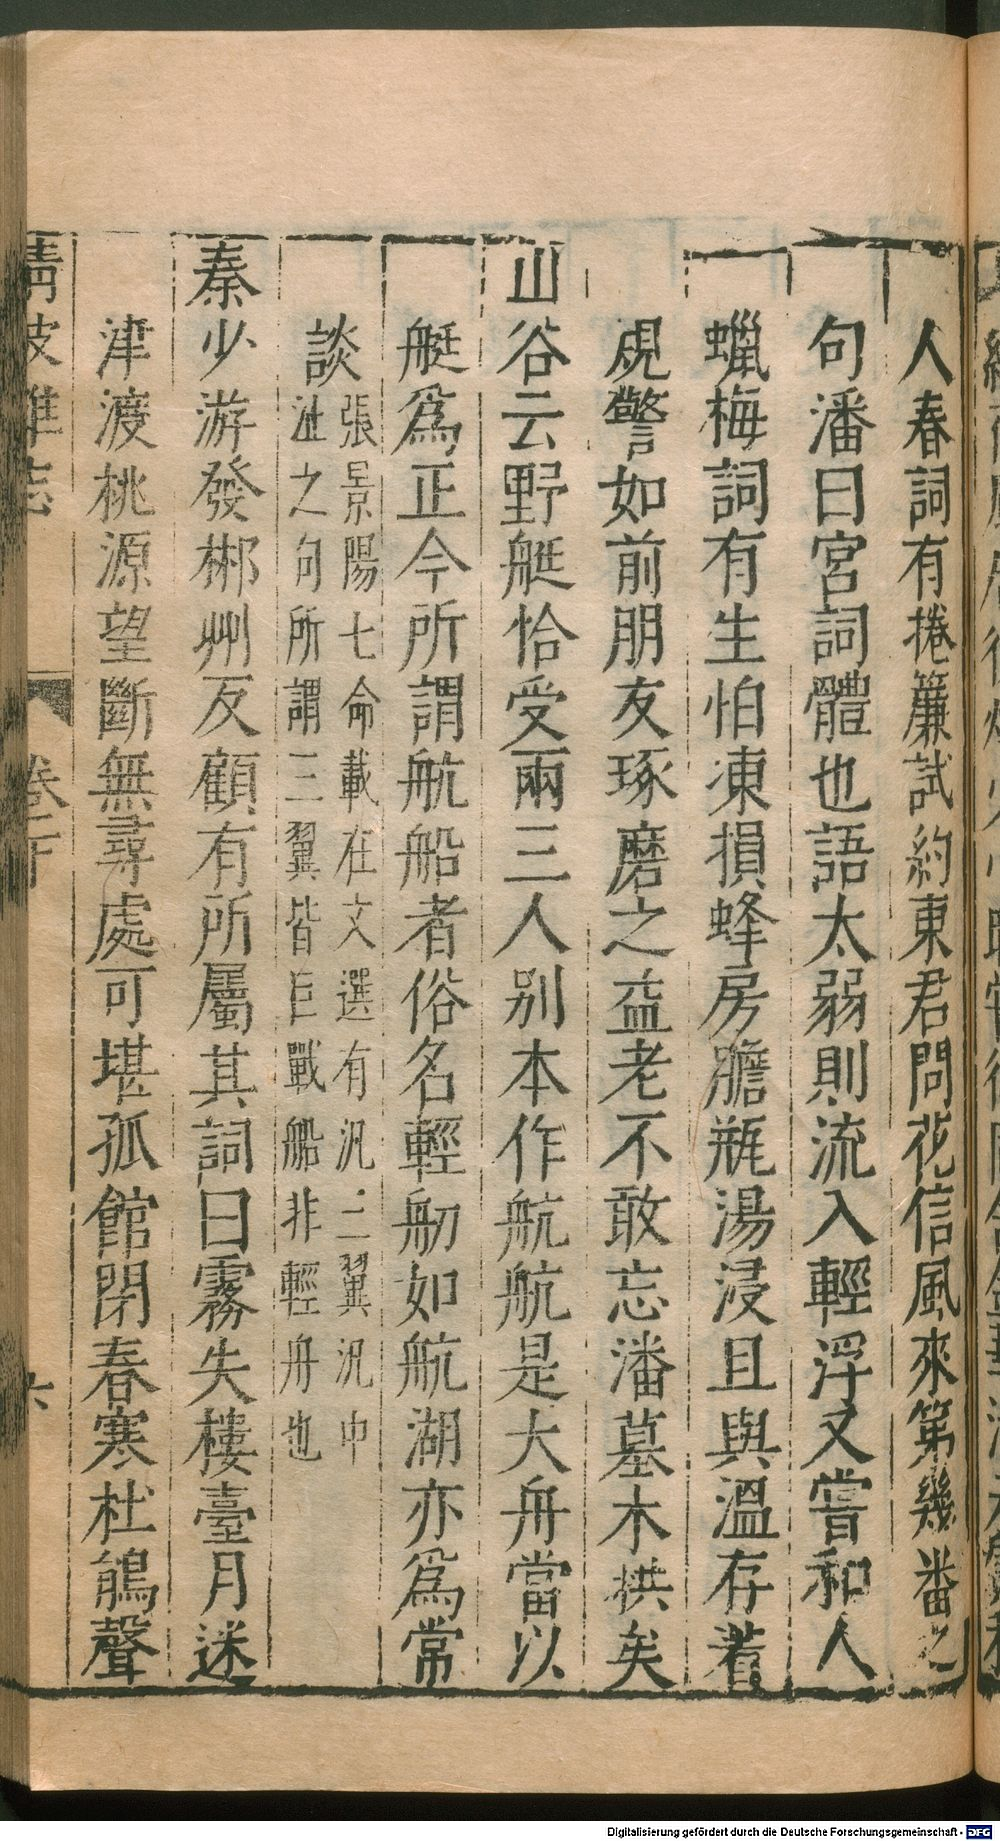 人春詞有捲簾試約東君問花信風來第幾番之
句潘曰宮詞體也語太弱則流入輕浮又嘗和人
蠟梅詞有生怕凍損蜂房膽瓶湯浸且與溫存着
規警如前朋友琢磨之益老不敢忘潘墓木拱矣
山谷云野艇恰受兩三人别本作航航是大舟當以
艇爲正今所謂航船者俗名輕舠如航湖亦爲常
談
張景陽七命載在文選有汎三翼汎中
沚之句所謂三翼皆巨戰船非輕舟也
秦少游發郴州反顧有所屬其詞曰霧失樓臺月迷
津渡桃源望斷無尋處可堪孤館閉春寒杜鵑聲
清波雜志
卷
六
Digitalisierung gefördert durch die Deutsche Forschungsgemeinschaft - DFG